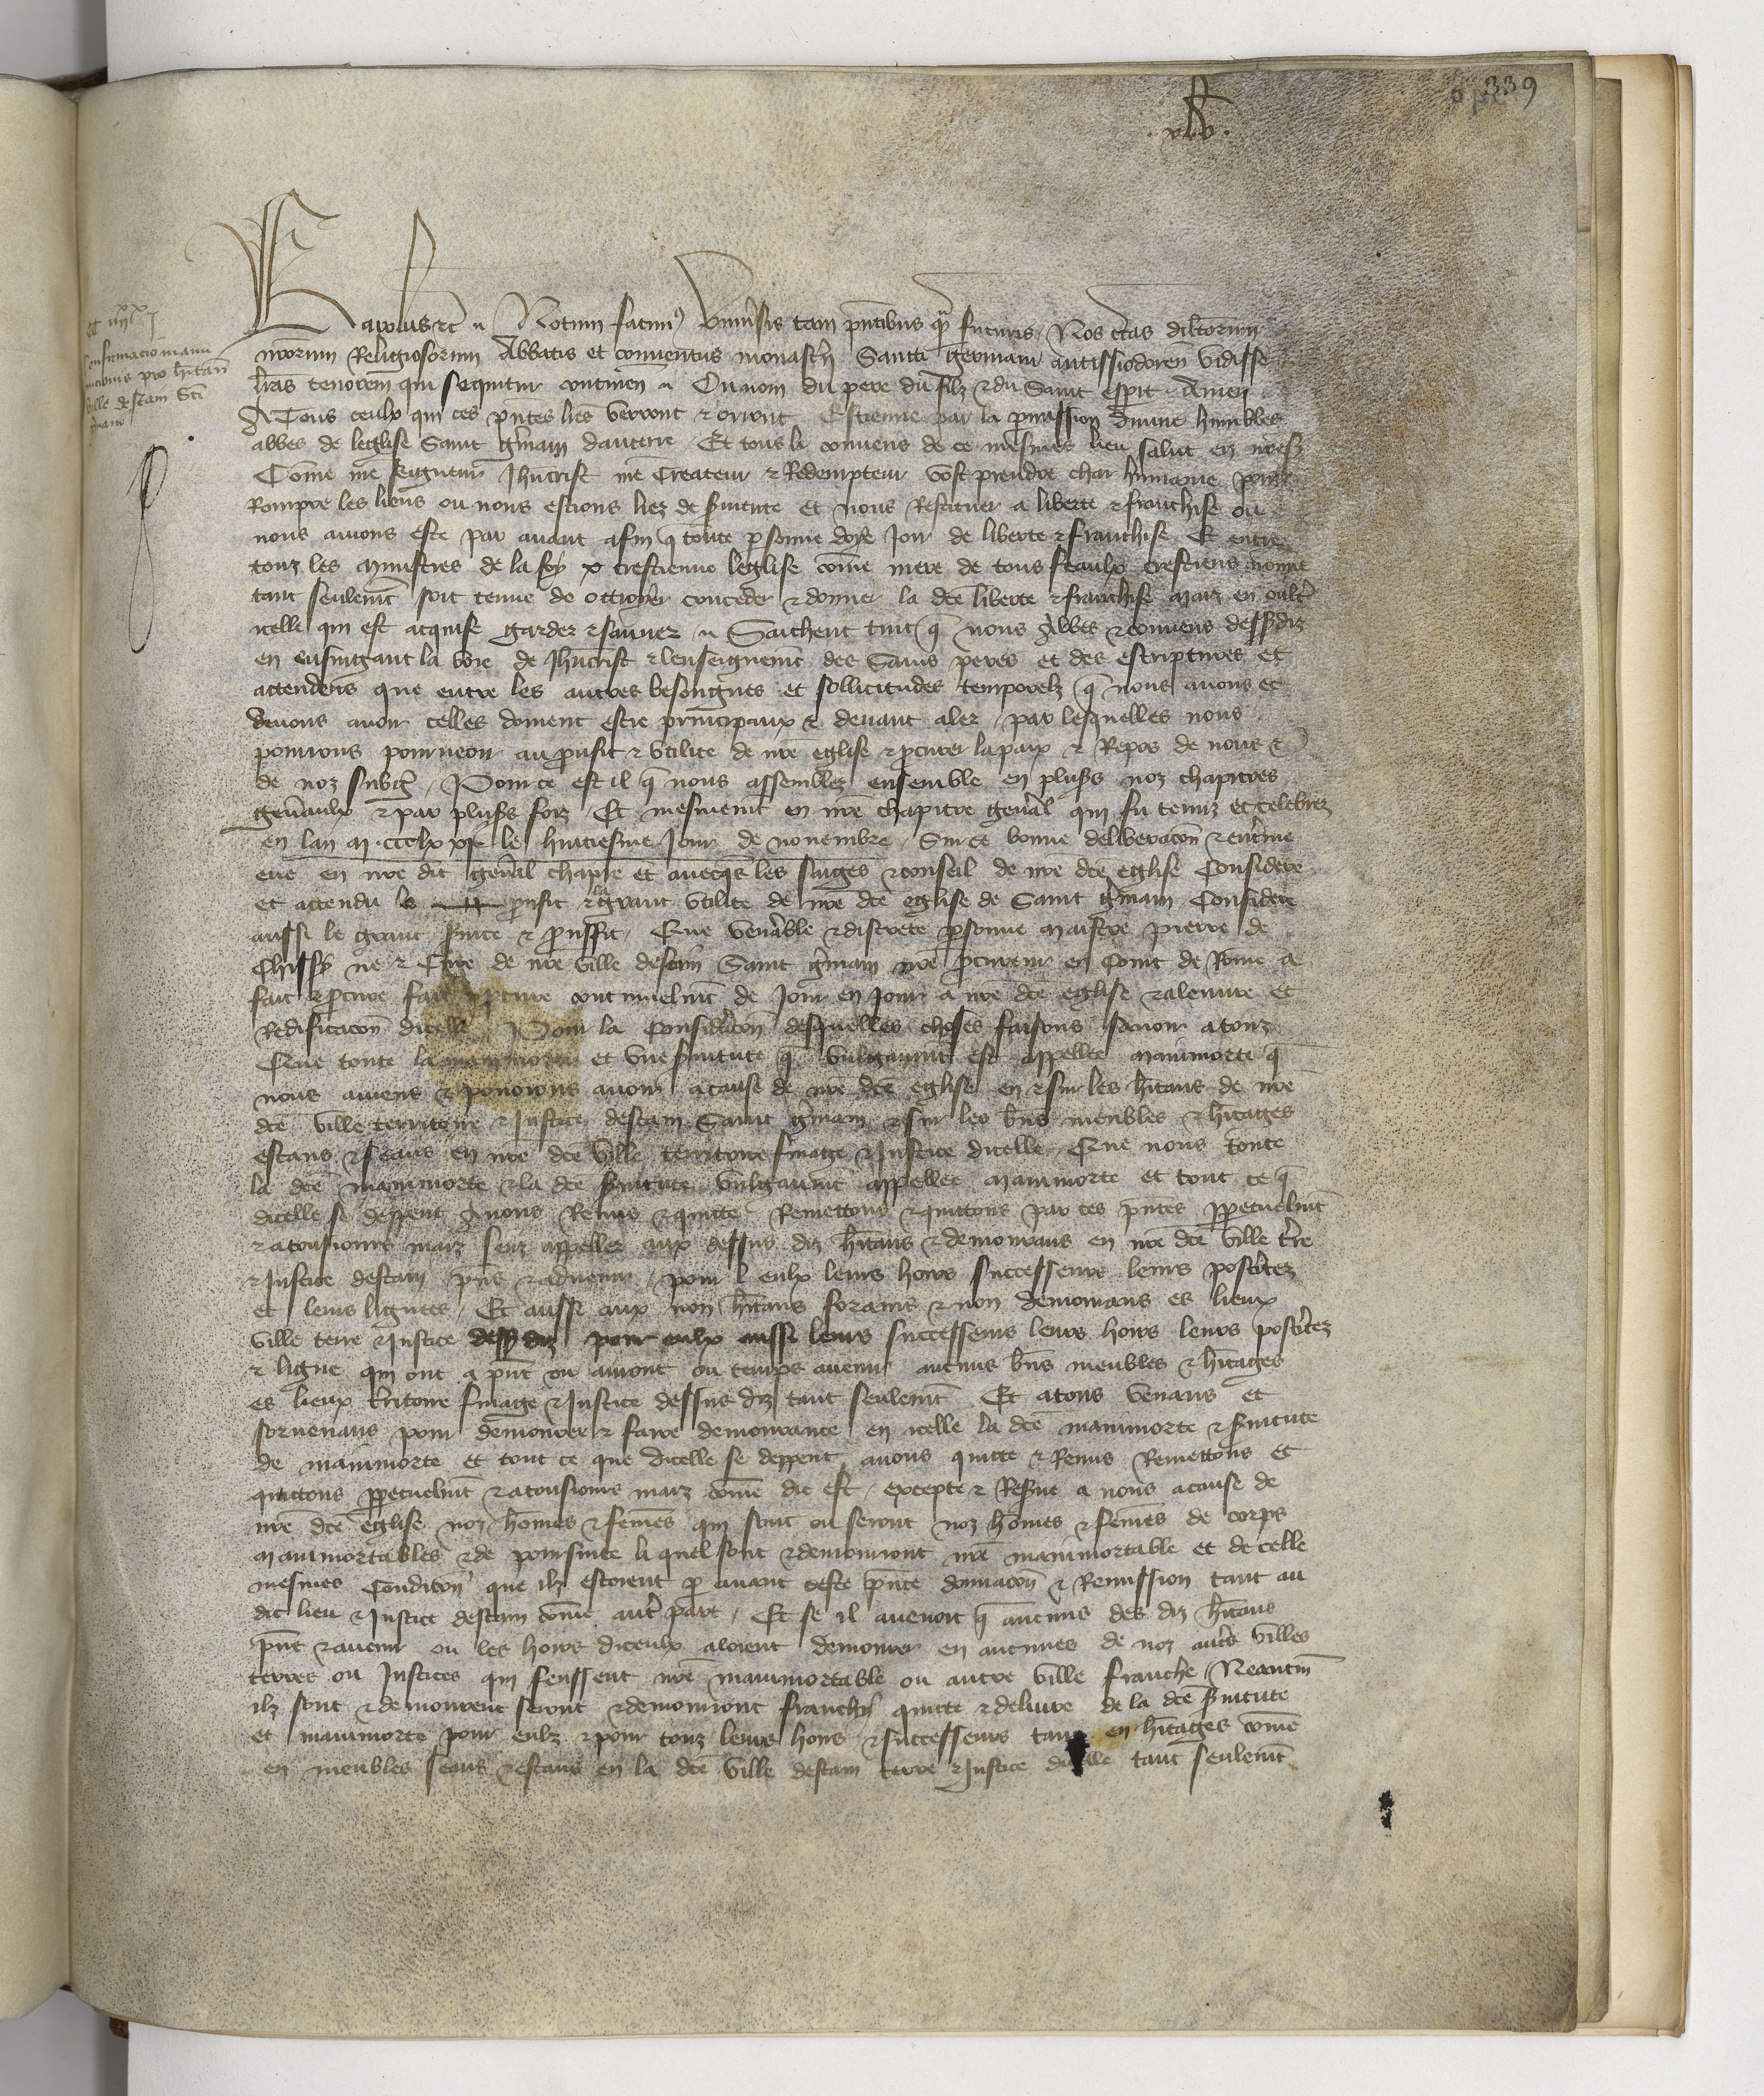 339
Karolus etc. Notum facimus universis tam pntibus qm futuris Nos lras dilectorum
nrorum Religiosorum Abbatis et conventus monastery Sancti Germani autissiodoren vidisse
lras tenorem qui sequitur continen. Ou nom du pere du filz & du Saint esprit Amen
A Tous ceulx qui ces pntes lres verront & orront Estienne par la permission divine humbles
abbes de leglise Saint Gmain daucerre Et tous li convens de ce mesmes lieu salut en nreS
Come nre Seigneur Jhucrist nre Createur & Redempteur vost prendre char humaine pour
Rompre les liens ou nous estions liez de svitute et nous Restituer a liberte & franchise ou
nous avions este par avant afin q toute psonne doye Joir de liberte & franchise Et entre
touz les ministres de la foy xpcrestienne leglise come mere de tous feaulx crestiens nonme
tant seulemt soit tenue de ottroyer conceder & donner la dce liberte & franchise maiz en oultr
icelle qui est acquise garder & sauver Saichent tuit q nous Abbes & convens dessusdiz
en ensuigant la voie de Jhucrist & lenseignemt des Sains peres et des escriptures et
attendens que entre les autres besoingnes et sollicitudes temporelz q nous avons et
devons avoir celles doivent estre principaux & devant aler par lesquelles nous
pourrions pourveoir au proufit & utilite de nre eglise & pcurer la paix & Repos de nous &
de noz subgz Pour ce est il q nous assemblez ensemble en plusrs noz chapitres
genraulx & par plusrs foiz Et mesmemt en nre chapitre genral qui fu tenuz et celebrez
en lan M CCC lx xix le huitiesme Jour de novembre Sur ce bonne deliberacon & entrine
eue en nre dit genral chapre et avecqs les saiges & conseil de nre dce eglise Considere
et attendu le proufit & la grant utilite de nre dce eglise de Saint Gmain Considere
aussi le grant svice & prouffit Que venrable & discrete psonne maistre pierre de
Chissy ne & Cure de nre ville destam Saint gmain nre pcureur en Court de Rome a
fait & pcure fait & pcure continuelmt de Jour en Jour a nre dce eglise & a leuvre et
Redificacon dicelle Pour la consideracon desquelles choses faisons savoir a touz
Que toute la mainmorte et une svitute q vulgaumt est appellee mainmorte q
nous aviens & povoiens avoir a cause de nre dce eglise en & sur les hitans de nre
dce ville territoire & Justice destam Saint gmain & sur les bns meubles & hitages
estans & seans en nre dce ville territoire finage & Justice dicelle Que nous toute
la dce mainmorte & la dce svitute vulgaumt appellee mainmorte et tout ce q
dicelle se deppent Avons Remis & quitte Remettons & quittons par ces pntes ppetuelmt
& a tousiours maiz senz appeller aux dessus diz hitans & demourans en nre dce ville tre
& Justice destam pns & advenir pour eulx leurs hoirs successeurs leurs posteritez
et leurs lignees Et aussi aux non hitans forains & non demourans es lieux
ville terre & Justice dessus diz pour eulx aussi leurs successeurs leurs hoirs leurs posteritez
& ligne qui ont a pnt ou auront ou temps avenir aucuns bns meubles & hitages
es lieux tritoire finage & Justice dessus diz tant seulemt Et a tous venans et
sorvenans pour demourer & faire demourance en icelle la dce mainmorte & svitute
de mainmorte et tout ce que dicelle se deppent avons quitte & Remis Remettons et
quittons ppetuelmt & a tousiours maiz come dit est excepte & Reserve a nous a cause de
nre dce eglise noz homes & femes qui sont ou seront noz homes & femes de corps
mainmortables & de poursuite liquel sont & demourront nre mainmortable et de celle
mesmes condicon que ilz estoient p avant ceste pnte donnacon & Remission tant au
dit lieu & Justice destam come autre part Et se il avenoit q aucuns des diz hitans
pnt & avenir ou les hoirs diceulx aloient demourer en aucunes de noz autres villes
terres ou Justices qui feussent nre mainmortable ou autre ville franche Neantm
ilz sont & demourent seront & demourront franchy quitte & delivre de la dce svitute
et mainmorte pour eulz & pour touz leurs hoirs & successeurs tant en hitages come
en meubles seans & estans en la dce ville destam terre & Justice dicelle tant seulemt
Confirmacio manu
mortuis pro hitan
ville destam Sci
gmani